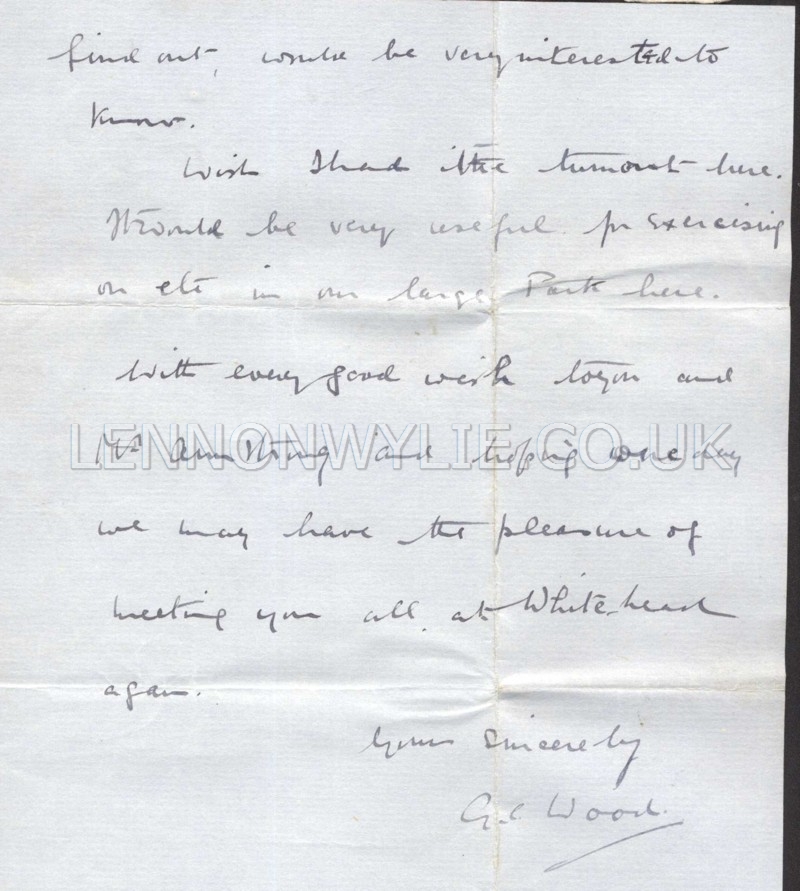 find out, would be very interested to
know.
Wish I had the turnout here.
It would be very useful for exercising
on etc in our large Park here.
With every good wish to you and
Mrs Armstrong and hoping one day
LENNONWYLIE.CO.UK
we may have the pleasure of
meeting you all at Whitehead
again.
Yours Sincerely
G.C Wood.